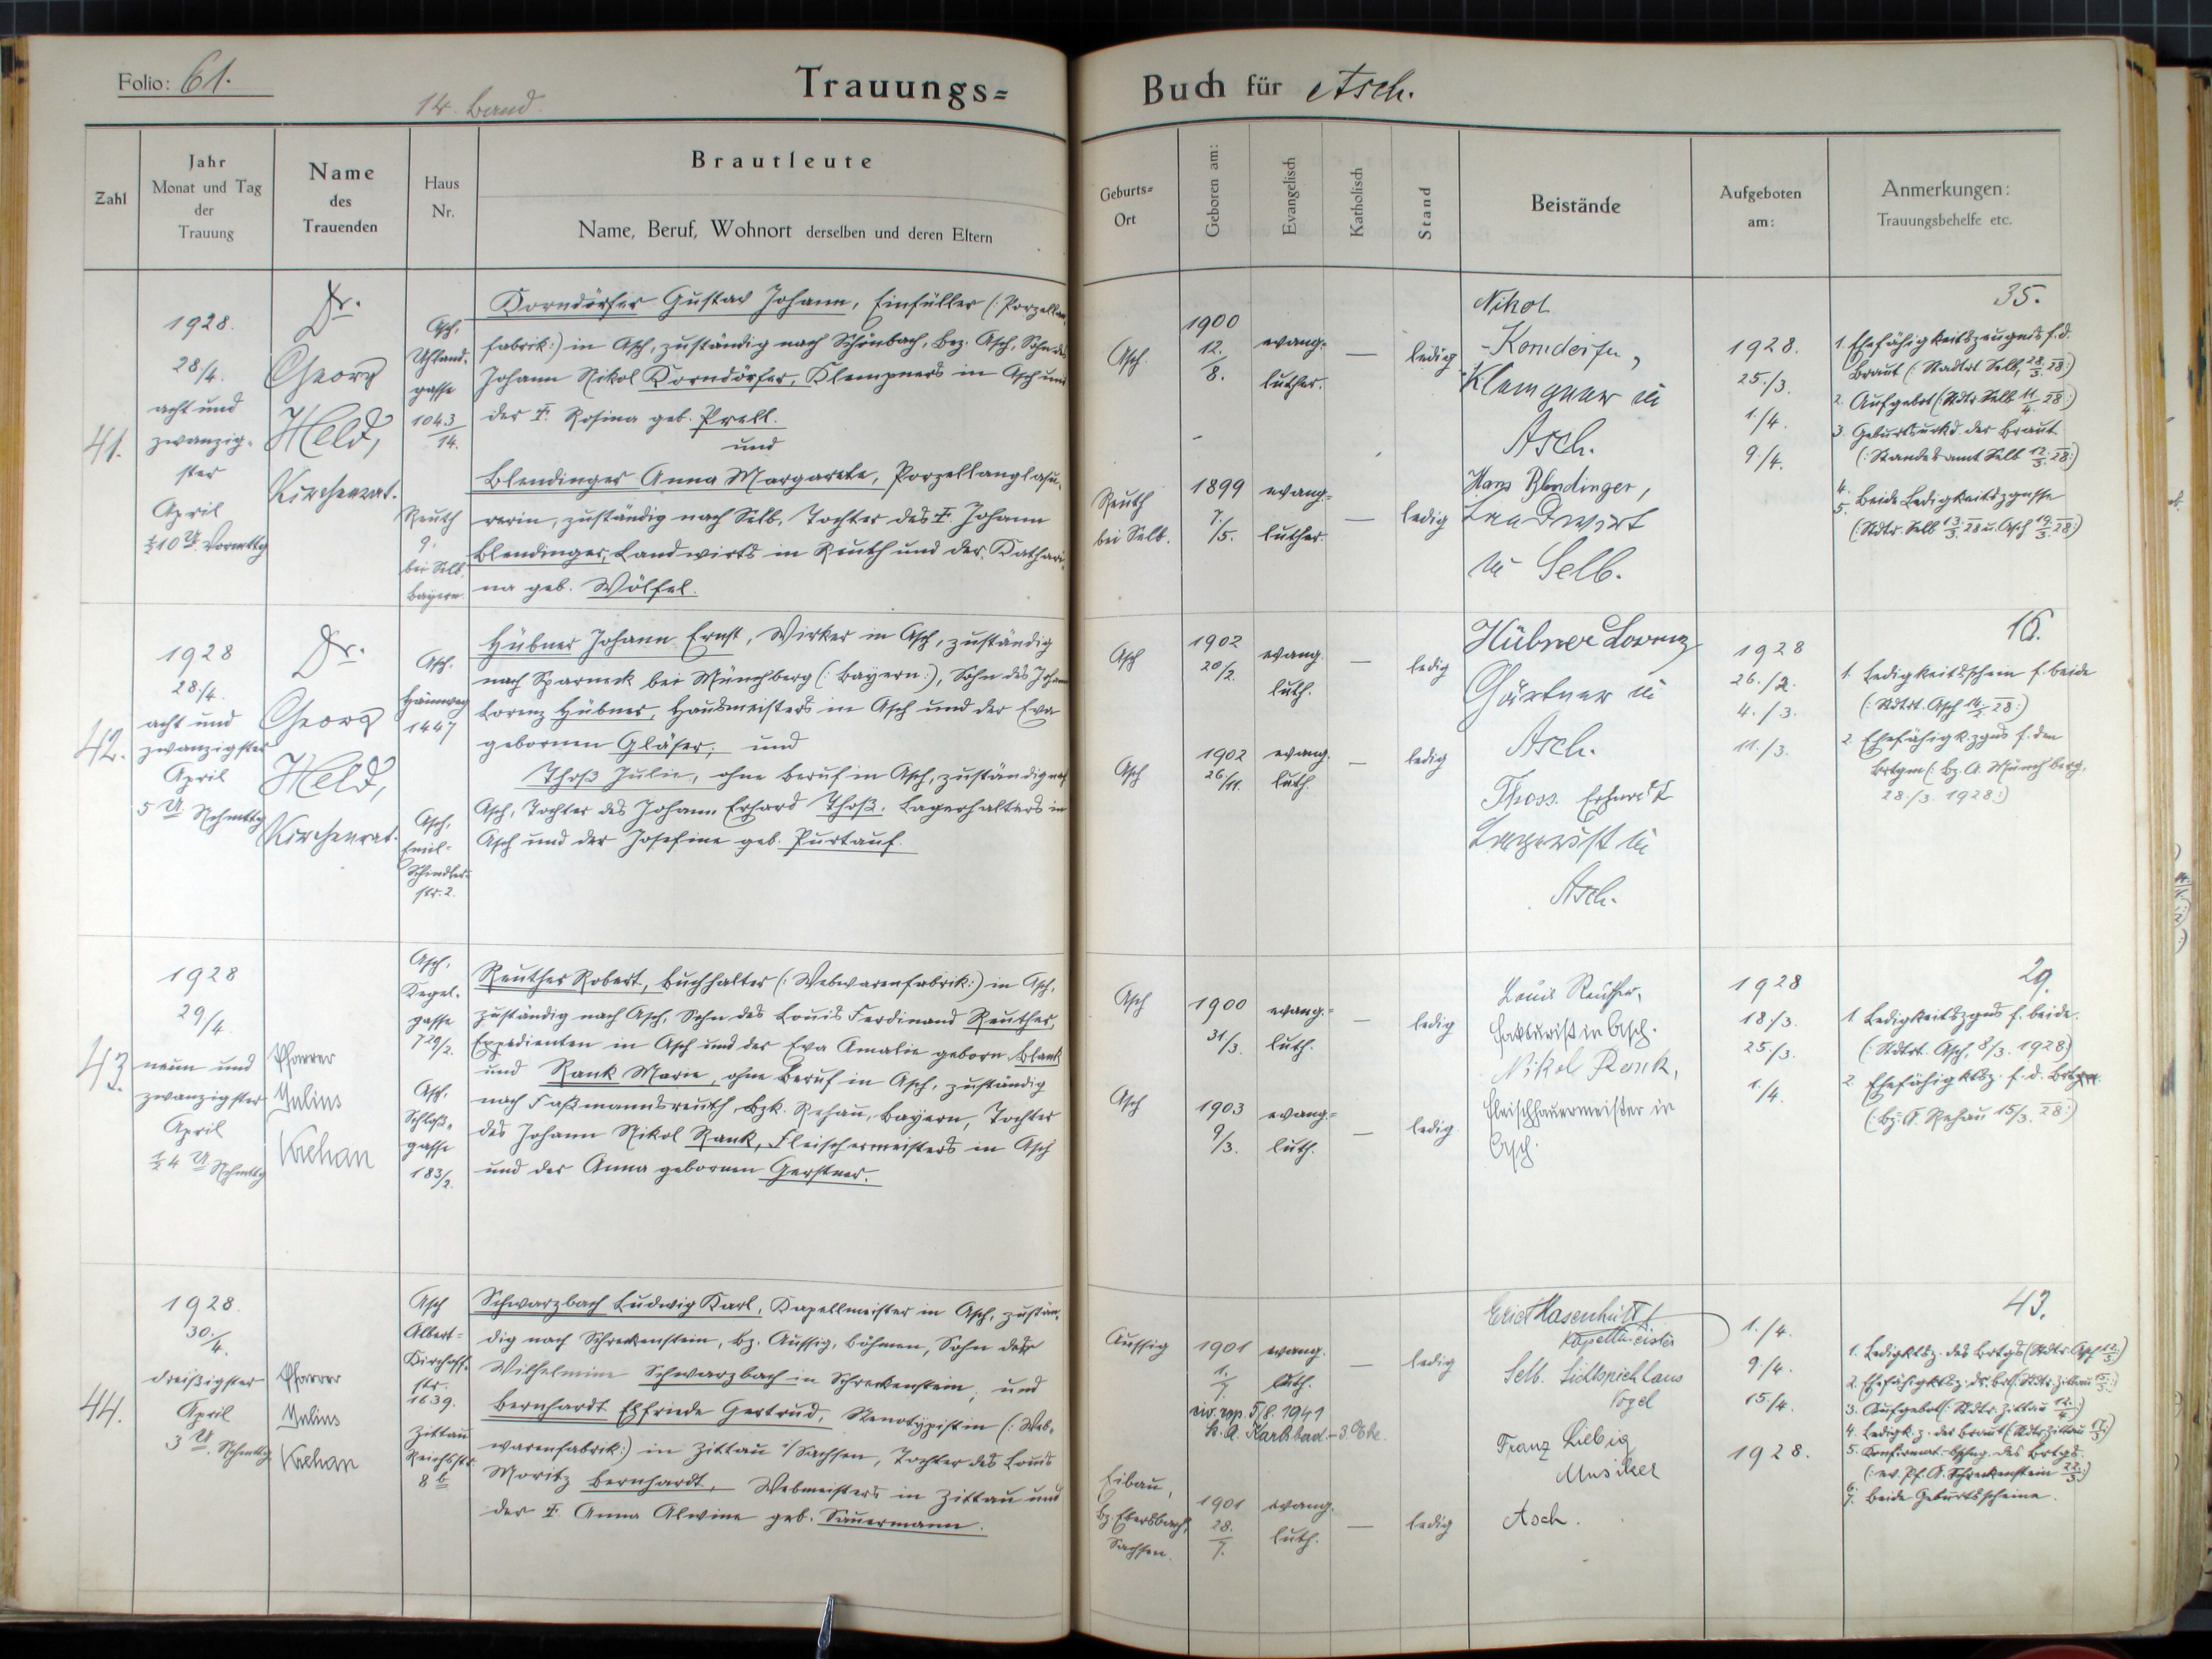 Folio: 61.
14. Band
Trauungs= Buch für Asch.
Zahl
Jahr
Monat und Tag
der
Trauung
Name
des
Trauenden
Haus
Nr.
Brautleute
Name, Beruf, Wohnort derselben und deren Eltern
Geburts=
Ort
Geboren am:
Evangelisch
Katholisch
Stand
Beistände
Aufgeboten
am:
Anmerkungen:
Trauungsbehelfe etc.
41.
1928.
28/4.
acht und
zwanzig-
ster
April
½10 U Vormttg
Dr.
Georg
Held,
Kirchenrat.
Asch,
Uhland-
gasse
1043/14.
Reuth
9.
bei Selb,
Bayern.
Korndörfer Gustav Johann, Einfüller (: Porzellan-
fabrik:) in Asch, zuständig nach Schönbach, Bez. Asch, Sohn des
Johann Nikol Korndörfer, Klempners in Asch und
der † Rosina geb. Prell.
und
Blendinger Anna Margarete, Porzellanglasu-
rerin, zuständig nach Selb, Tochter des † Johann
Blendinger, Landwirts in Reuth und der Kathari-
na geb. Wölfel.
Asch.
1900
12.
8.
evang.
luther.
—
ledig
Reuth
bei Selb.
1899
7.
/5.
evang.=
luther.
—
ledig
Nikol
Korndörfer,
Klempner in
Asch.
Hans Blendinger,
Landwirt
in Selb.
1928.
25./3.
1./4.
9./4.
35.
1. Ehefähigkeitszeugnis f. d.
Braut (: Stadtrt Selb, 28/3. 28:)
2. Aufgebot (Stdtr. Selb 11/4. 28:)
3. Geburtsurkd. der Braut
(: Standesamt Selb 12/3. 28:)
4.
5. Beide Ledigkeitszgnisse
(: Stdtr. Selb 13/3. 28 u. Asch 19/3. 28:)
42.
1928
28./4.
acht und
zwanzigster
April
5 U Nchmttg
Dr.
Georg
Held,
Kirchenrat.
Asch.
Hainweg
1447
Asch,
Emil-
Schindler-
str. 2.
Hübner Johann Ernst, Wirker in Asch, zuständig
nach Sparneck bei Münchberg (: Bayern:), Sohn des Johann
Lorenz Hübner, Hausmeisters in Asch und der Eva
gebornen Gläser; und
Thoß Julie, ohne Beruf in Asch, zuständig nach
Asch, Tochter des Johann Erhard Thoß, Lagerhalters in
Asch und der Josefine geb. Purtauf.
Asch
1902
20/2.
evang.
luth.
—
ledig
Asch
1902
26/11.
evang.
luth.
—
ledig
Hübner Lorenz
Gärtner in
Asch.
Thoss Erhardt
in
Asch.
1928
26./2.
4./3.
11./3.
16.
1. Ledigkeitsschein f. beide
(: Stdtrt. Asch 14/2. 28:)
2. Ehefähigk.zgnis f. den
Brtgm (: Bz. A. Münchberg,
28./3. 1928:)
43.
1928
29/4.
neun und
zwanzigster
April
½4 U Nchmttg
Pfarrer
Julius
Krehan
Asch,
Kegel-
gasse
729/2.
Asch,
Schloß-
gasse
183/2.
Reuther Robert, Buchhalter (: Webwarenfabrik:) in Asch,
zuständig nach Asch, Sohn des Louis Ferdinand Reuther,
Expedienten in Asch und der Eva Amalie geborn. Blank
und Rank Marie, ohne Beruf in Asch, zuständig
nach Faßmannsreuth, Bzk. Rehau, Bayern, Tochter
des Johann Nikol Rank, Fleischermeisters in Asch
und der Anna gebornen Gerstner.
Asch
1900
31/3.
evang.=
luth.
—
ledig
Asch
1903
9/3.
evang.=
luth.
—
ledig.
Louis Reuther,
Fakturist in Asch.
Nikol Rank,
Fleischhauermeister in
Asch.
1928
18./3.
25./3.
1./4.
29.
1. Ledigkeitszgnis f. beide.
(: Stdtrt. Asch, 8/3. 1928)
2. Ehefähigktsz. f. d. Brtgm.
(: Bz. A. Rehau 15/3. 28:)
44.
1928.
30./4.
dreißigster
April
3 U. Nchmttg
Pfarrer
Julius
Krehan
Asch
Albert-
Kirchhoff-
str.
1639.
Zittau
Reichsstr.
8 b
Schwarzbach Ludwig Karl, Kapellmeister in Asch, zustän-
dig nach Schreckenstein, Bz. Aussig, Böhmen, Sohn der
Wilhelmine Schwarzbach in Schreckenstein; und
Bernhardt Elfriede Gertrud, Stenotypistin (: Web-
warenfabrik:) in Zittau i/Sachsen, Tochter des Louis
Moritz Bernhardt, Webmeisters in Zittau und
der † Anna Alwine geb. Sauermann.
Aussig
1901
1.
7.
evang.
luth.
—
ledig
5/8. 1941
Karlsbad - 3. Ehe.
Eibau,
Bz. Ebersbach,
Sachsen.
1901
28.
7.
evang.
luth.
—
ledig
Erich Hasenhüttl
Kapellmeister
Selb. Lichtspielhaus
Vogel
Franz Liebig
Musiker
Asch.
1./4.
9./4.
15/4.
1928.
43.
1. Ledigktsz. des Brtgs (Stdtr. Asch 12/3:)
2. Ehefähigktsz. dr. Brt (: Stdtr. Zittau
3. Aufgebot (: Stdtr. Zittau 12/4:)
4. Ledigk. z. der Braut (: Stdtr. Zittau 17/3:)
5. Konfirmat. des Brtgs
(: ev. Pf. A. Schreckenstein 22/3:)
6.
7. Beide Geburtsscheine.